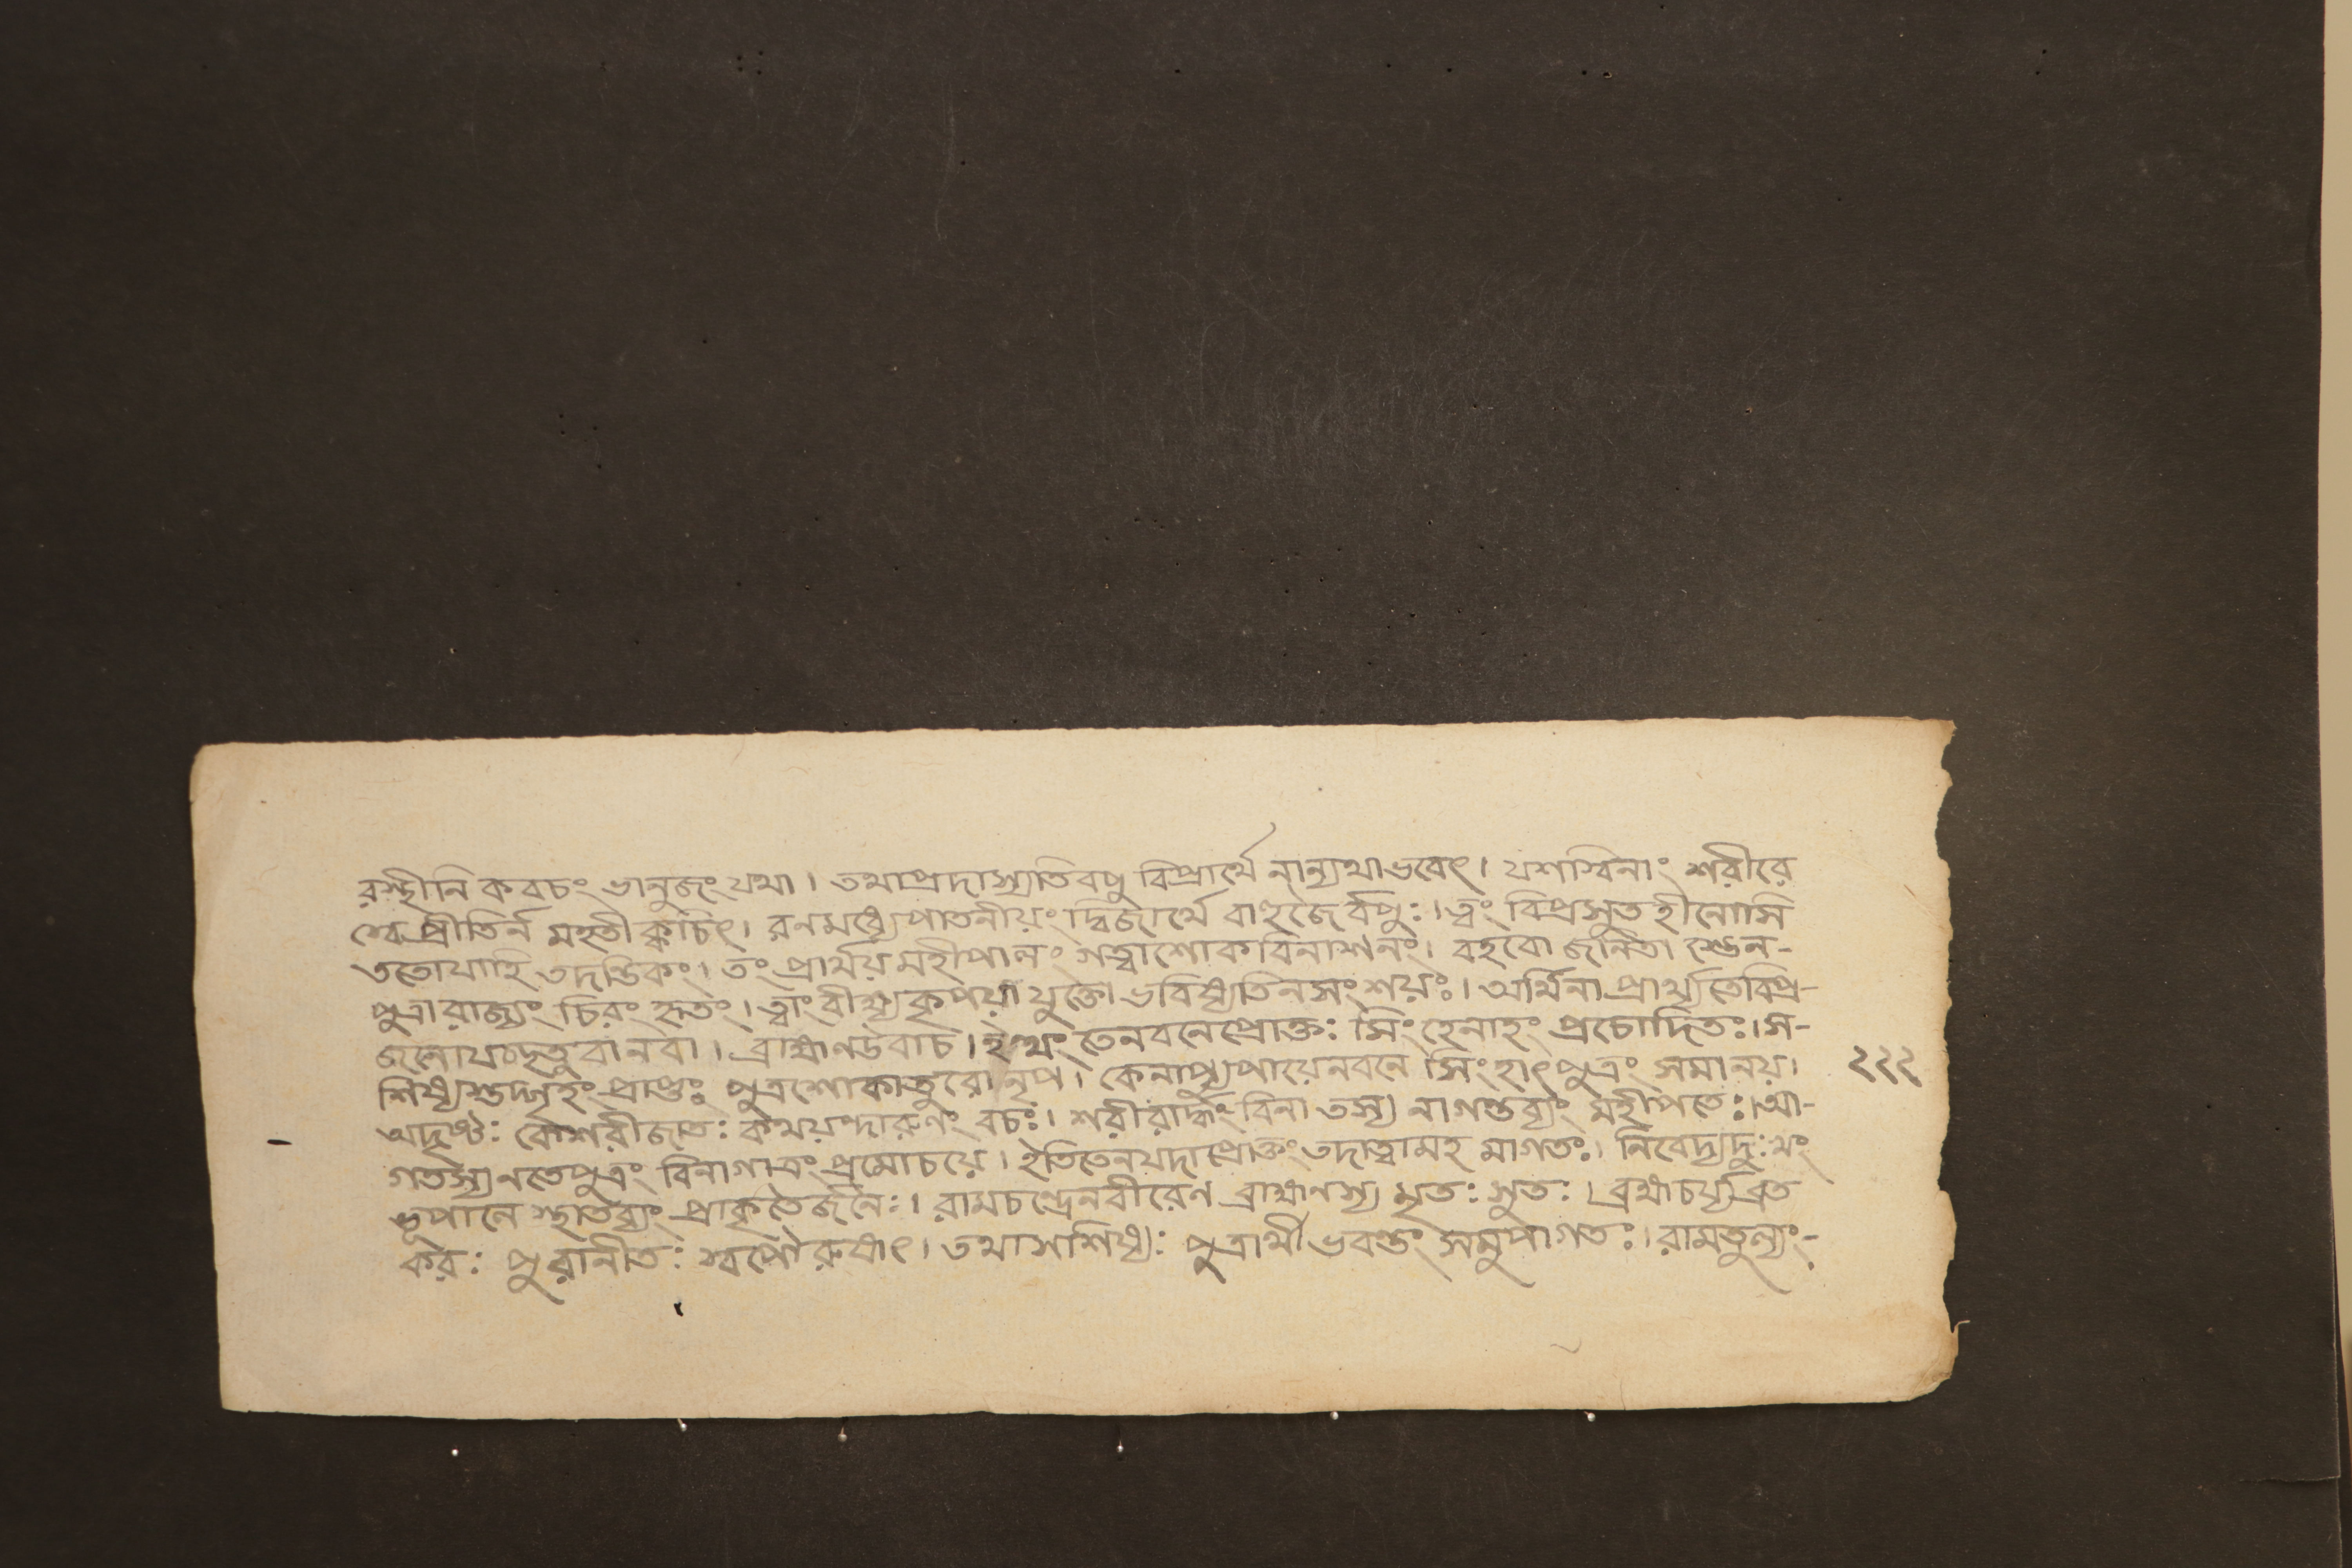 রস্থীনি কবচং ভানুজং যথা। তথাপ্রদাস্যতিবপু বিপ্রার্থে নান্যথাভবেৎ। যশস্বিনাং শরীরে
স্বে প্রীতির্ন মহতী ক্বচিৎ। রনমধ্যেপাতনীয়ং দ্বিজার্থে বাহুজৈর্বপুঃ। ত্বং বিপ্রসুতহীনোসি
ততোযাহি তদন্তিকং। তং প্রার্থয়মহীপালং গত্বাশোকবিনাশনং। বহবো জনিতা স্তেন-
পুত্রা রাজ্যং চিরং হৃতং। ত্বাং বীক্ষ্যকৃপয়া যুক্তো ভবিষ্যতিনসংশয়ঃ। অর্থিনা প্রার্থ্যতেবিপ্র-
জনোযদ্দতুবানবা। ব্রাহ্মণউবাচ। ইত্থং তেনবনেপ্রোক্তঃ সিংহেনাহং প্রচোদিতঃ। স-
শিষ্যস্তদ্গৃহং প্রাপ্তঃ পুত্রশোকাতুরো নৃপ। কেনাপ্যুপায়েনবনে সিংহাৎপুত্রং সমানয়। ২২২
অদৃষ্টঃ কেশরীজাতঃ কথয়ন্দারুণং বচঃ। শরীরার্দ্ধং বিনা তস্য নাগন্তব্যং মহীপতেঃ। আ-
গতস্যনতেপুত্রং বিনাগাত্রং প্রমোচয়ে। ইতিতেনযদাপ্রোক্তং তদাত্বামহ মাগতঃ। নিবেদ্যদুঃখং
ভূপালে স্থাতব্যং প্রাকৃতৈর্জনৈঃ। রামচন্দ্রেনবীরেণ ব্রাহ্মণস্য মৃতঃ সুতঃ। ব্রহ্মচর্য্যব্রত
করঃ পুরানীতঃ স্বপৌরুষাৎ। তথাসশিষ্যঃ পুত্রার্থী ভবন্তং সমুপাগতঃ। রামতুল্যং-